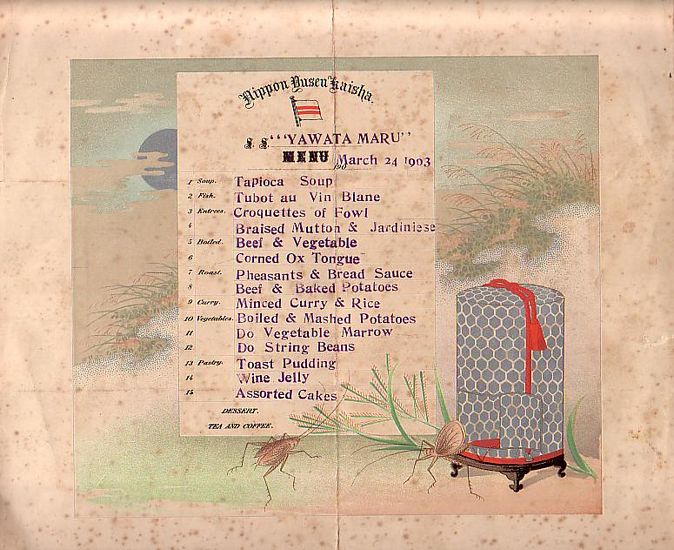 Nippon Yusen Kaisha.
S. S. "'YAWATA MARU"
MENU
March 24 1903
1 Soup. Tapioca Soup
2 Fish. Tubot au Vin Blane
3 Entrees. Croquettes of Fowl
4 Braised Mutton & Jardiniese
5 Boiled. Beef & Vegetable
6 Corned Ox Tongue
7 Roast. Pheasants & Bread Sauce
8 Beef & Baked Potatoes
9 Curry. Minced Curry & Rice
10 Vegetables. Boiled & Mashed Potatoes
11 Do Vegetable Marrow
12 Do String Beans
13 Pastry. Toast Pudding
14 Wine Jelly
15 Assorted Cakes
DESSERT.
TEA AND COFFEE.